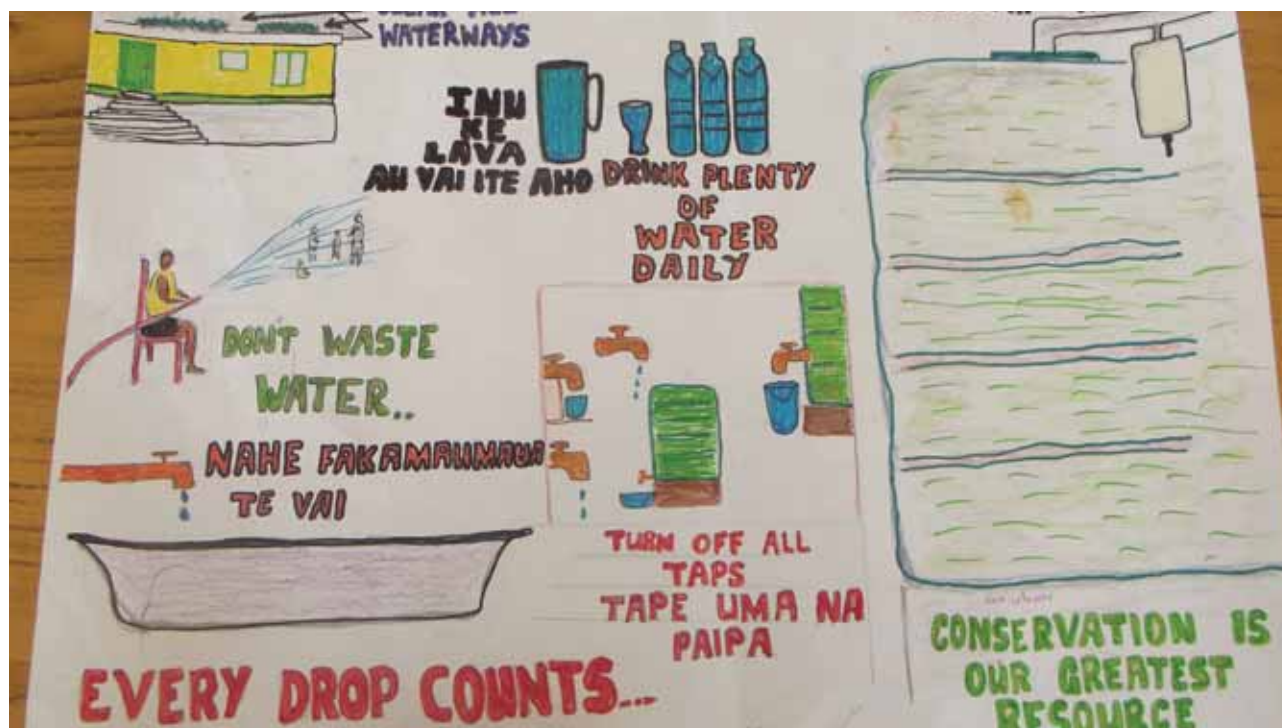 WATERWAYS
INU
KE
LAVA
AU VAI ITE AHO
DRINK PLENTY
OF
WATER
DAILY
DON'T WASTE
WATER..
NAHE FAKAMAUMAUA
TE VAI
TURN OFF ALL
TAPS
TAPE UMA NA
PAIPA
EVERY DROP COUNTS...
CONSERVATION IS
OUR GREATEST
RESOURCE